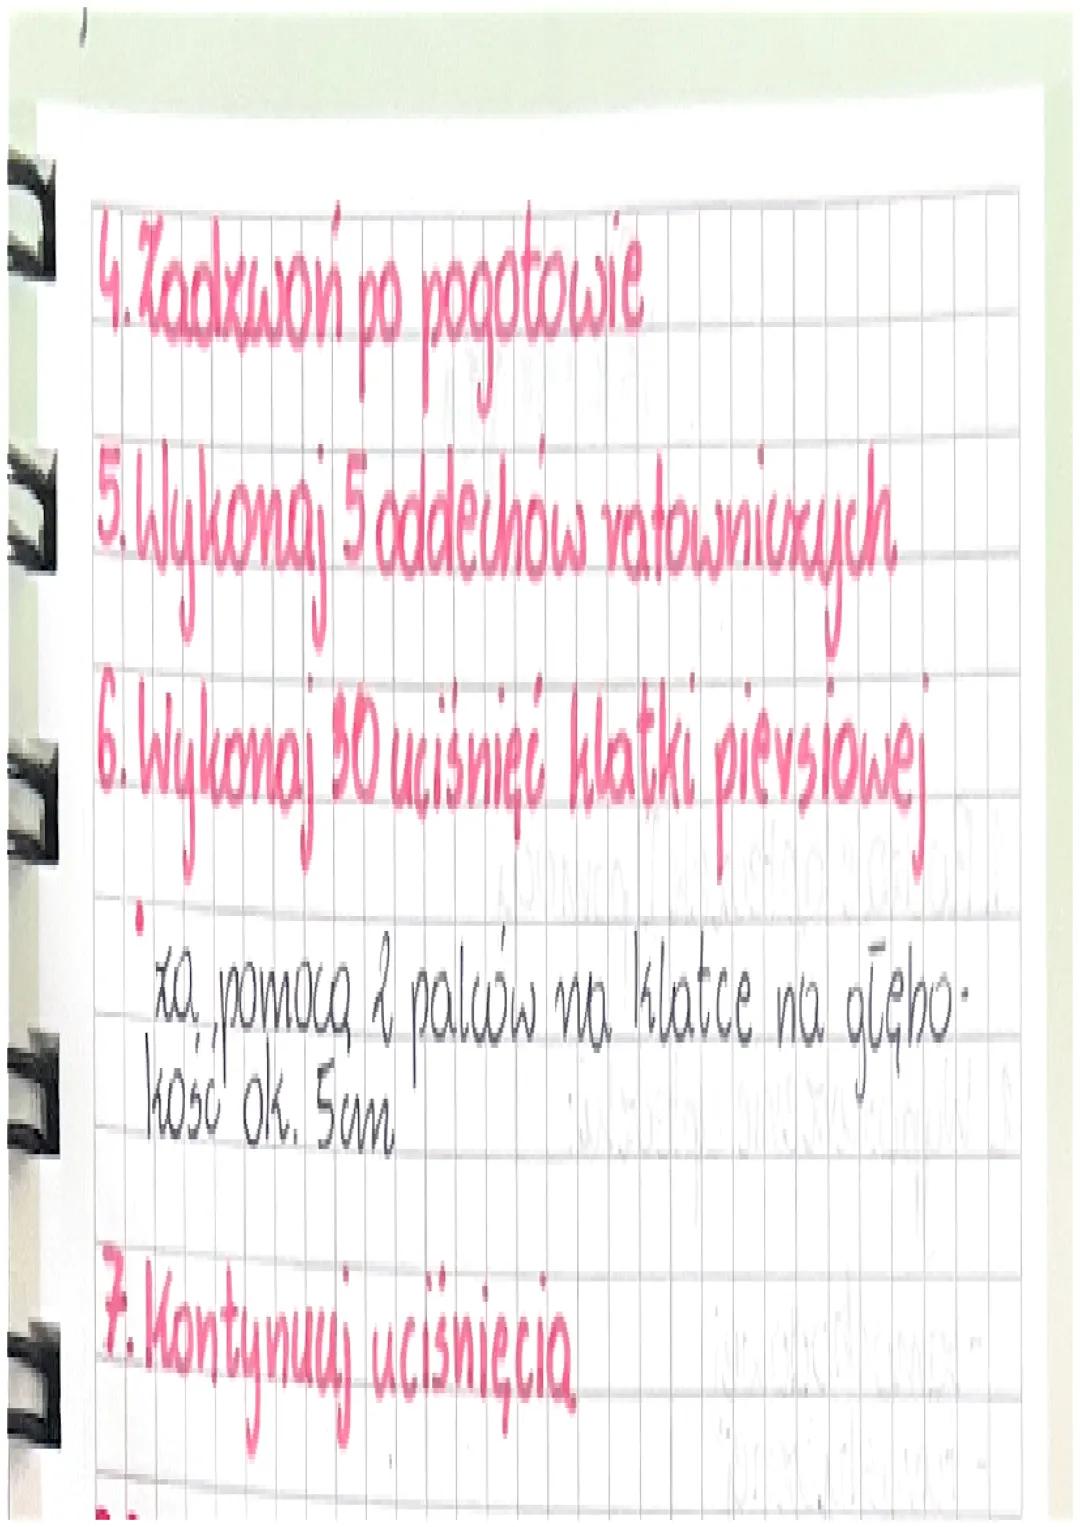 4. Zadzwoń po pogotowie
5. Wykonaj 5 oddechów ratowniczych
6. Wykonaj 30 uciśnięć klatki piersiowej
• za pomocą 2 palców na klatce na głębo-
kość ok. 5cm
7. Kontynuuj uciśnięcia